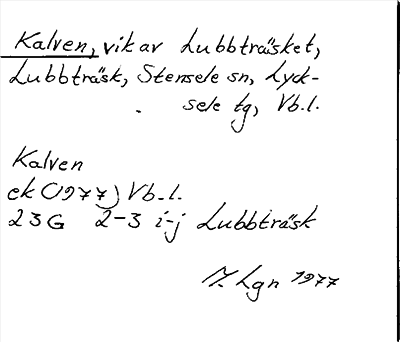 Kalven, vik av Lubbträsket,
Lubbträsk, Stensele sn, Lyck-
sele tg, Vb.l.
Kalven
ek (1977) Vb.l.
23G 2-3 i-j Lubbträsk
Lgn 1977